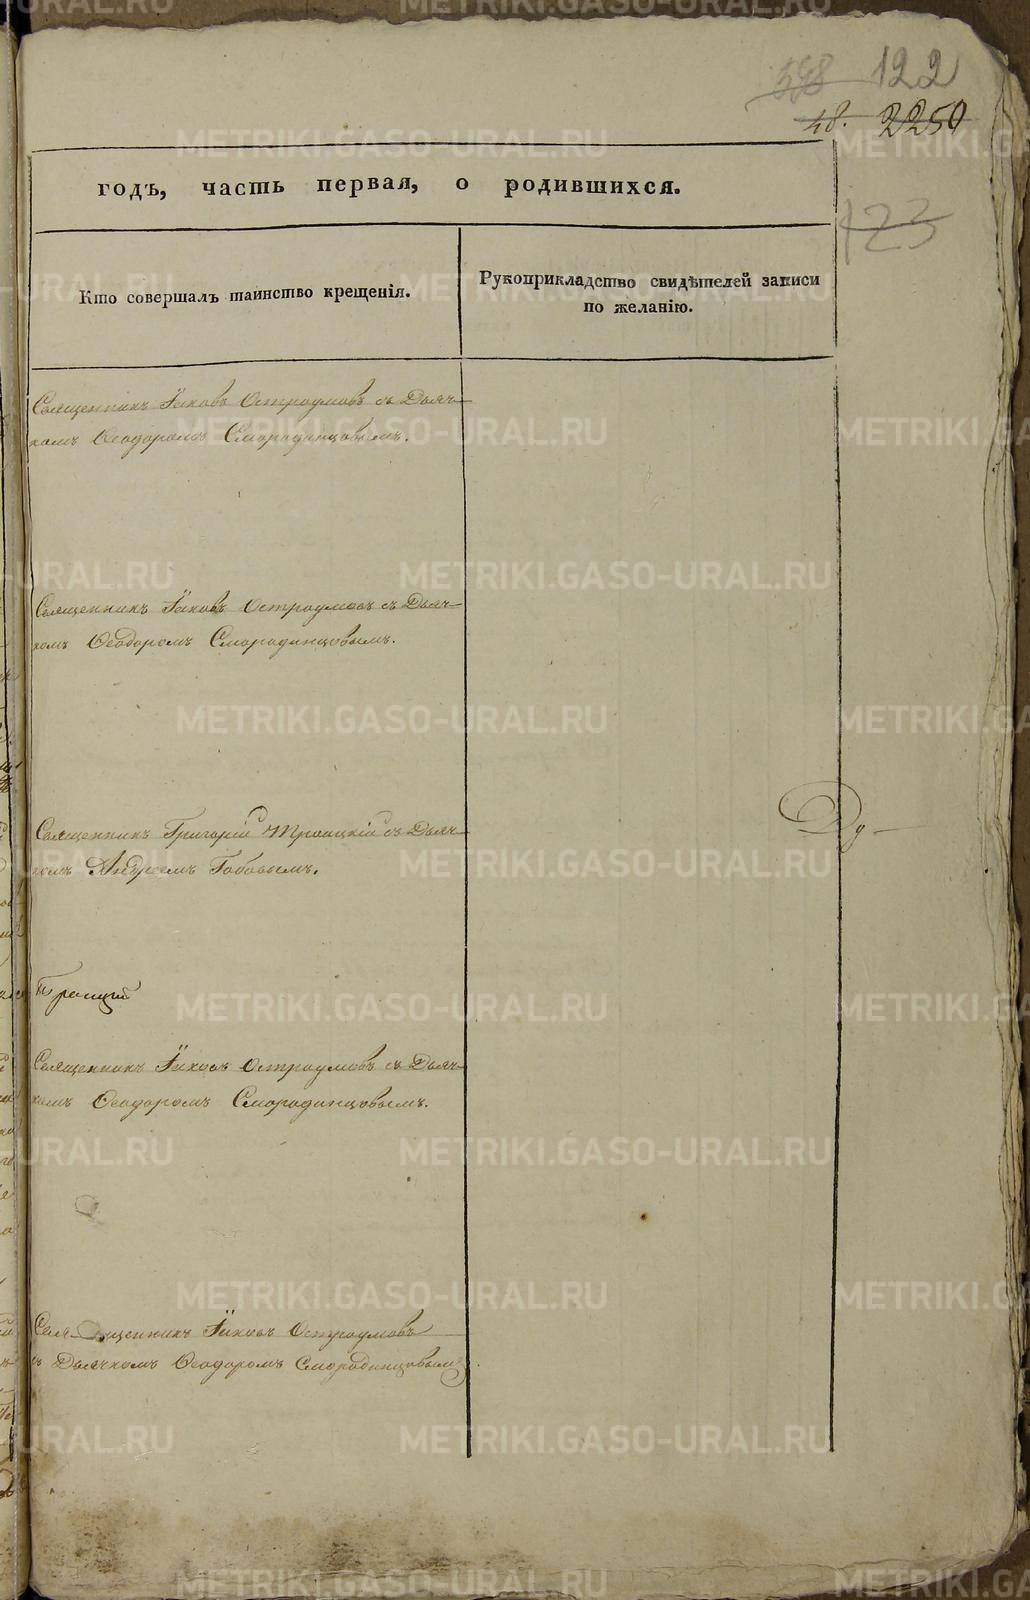 598 122
48. 2250
годъ, часть первая, о родившихся.
123
Кто совершалъ таинство крещенія.
Рукоприкладство свидѣтелей записи
по желанію.
Священникъ Іаковъ Остроумовъ съ Дьяч-
комъ Ѳеодоромъ Смородинцовымъ.
Священникъ Іаковъ Остроумовъ съ Дьяч-
комъ Ѳеодоромъ Смородинцовымъ.
Священникъ Григорій Троицкій съ Дьяч-
комъ Андреемъ Бобовымъ.
Троицкій
Священникъ Іаковъ Остроумовъ съ Дьяч-
комъ Ѳеодоромъ Смородинцовымъ.
Свя-щенникъ Іаковъ Остроумовъ
съ Дьячкомъ Ѳеодоромъ Смородинцовымъ.
METRIKI.GASO-URAL.RU